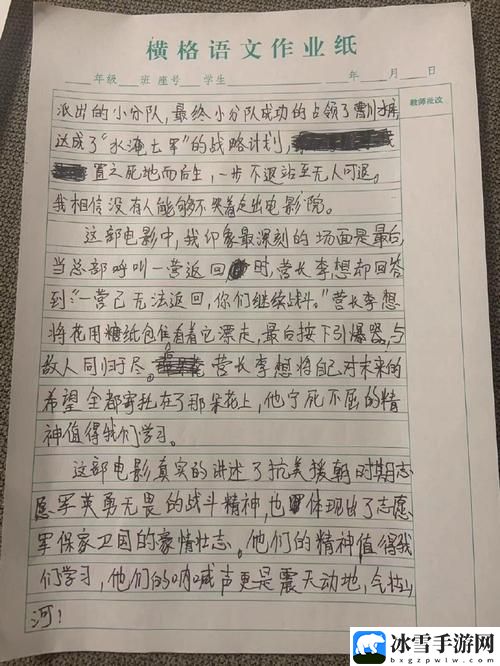 横格语文作业纸
年级 班 座号 学生 年 月 日
教师批改
派出的小分队，最终小分队成功的占领了
达成了“水淹七军”的战略计划，
置之死地而后生，一步不退站至无人可退。
我相信没有人能够不哭着走出电影院。
这部电影中，我印象最深刻的场面是最后，
当总部呼叫一营返回时，营长李想却回答
到：“一营已无法返回，你们继续战斗。”营长李想
将花用糖纸包住看着它漂走，最后按下引爆器，与
敌人同归于尽。营长李想将自己对未来的
希望全都寄托在了那朵花上，他宁死不屈的精
神值得我们学习。
这部电影真实的讲述了抗美援朝时期志
愿军英勇无畏的战斗精神，也体现出了志愿
军保家卫国的豪情壮志。他们的精神值得我
们学习，他们的呐喊声更是震天动地，气壮山
河！
冰雪手游网
bxgzpwlw.com